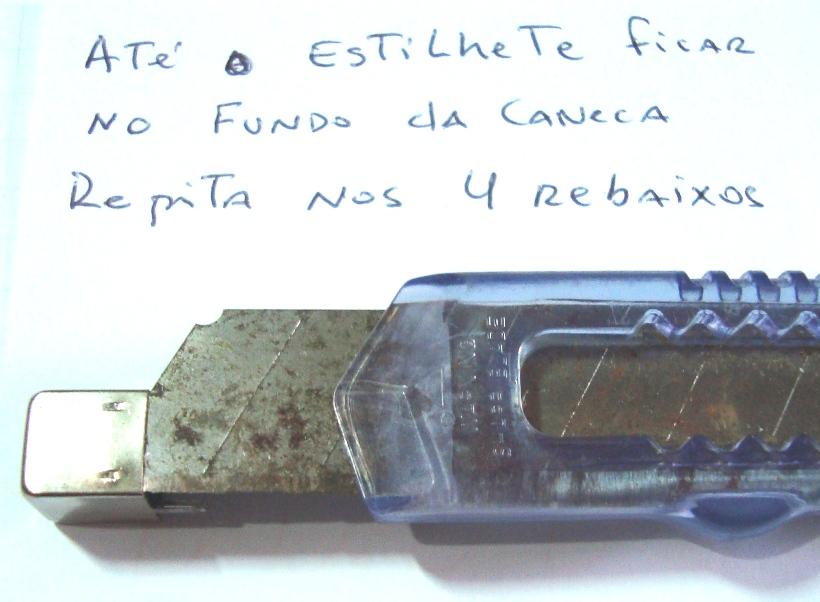 ATé o ESTiLheTe ficAR
NO FUNDO dA CANECA
RepiTA NOS 4 RebAixOS